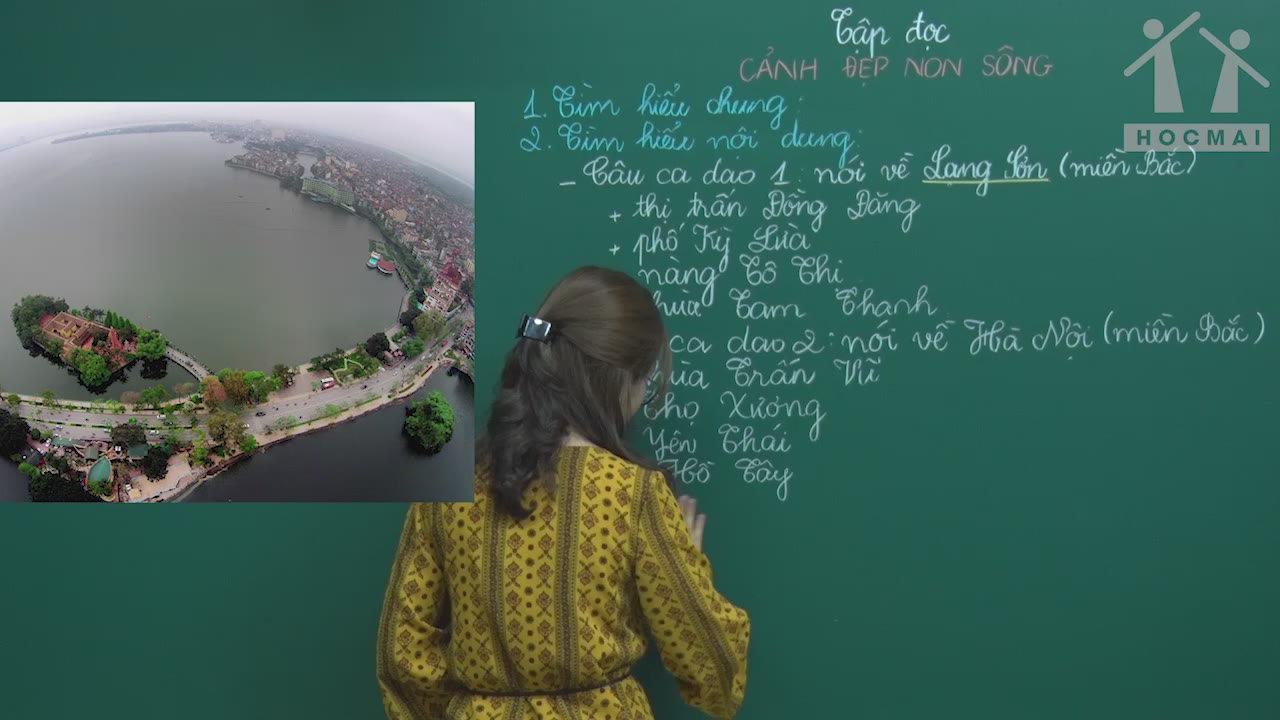 Tập đọc
CẢNH ĐẸP NON SÔNG
HOCMAI
1. Tìm hiểu chung:
2. Tìm hiểu nội dung:
- Câu ca dao 1: nói về Lạng Sơn (miền Bắc)
+ thị trấn Đồng Đăng
+ phố Kỳ Lừa
nàng Tô Thị
Tam Thanh
ca dao 2: nói về Hà Nội (miền Bắc)
Trấn Vũ
Thọ Xương
Yên Thái
Hồ Tây